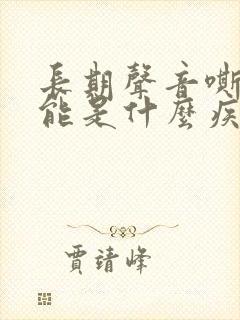 長期聲音嘶
能是什麼疾
賈靖峰